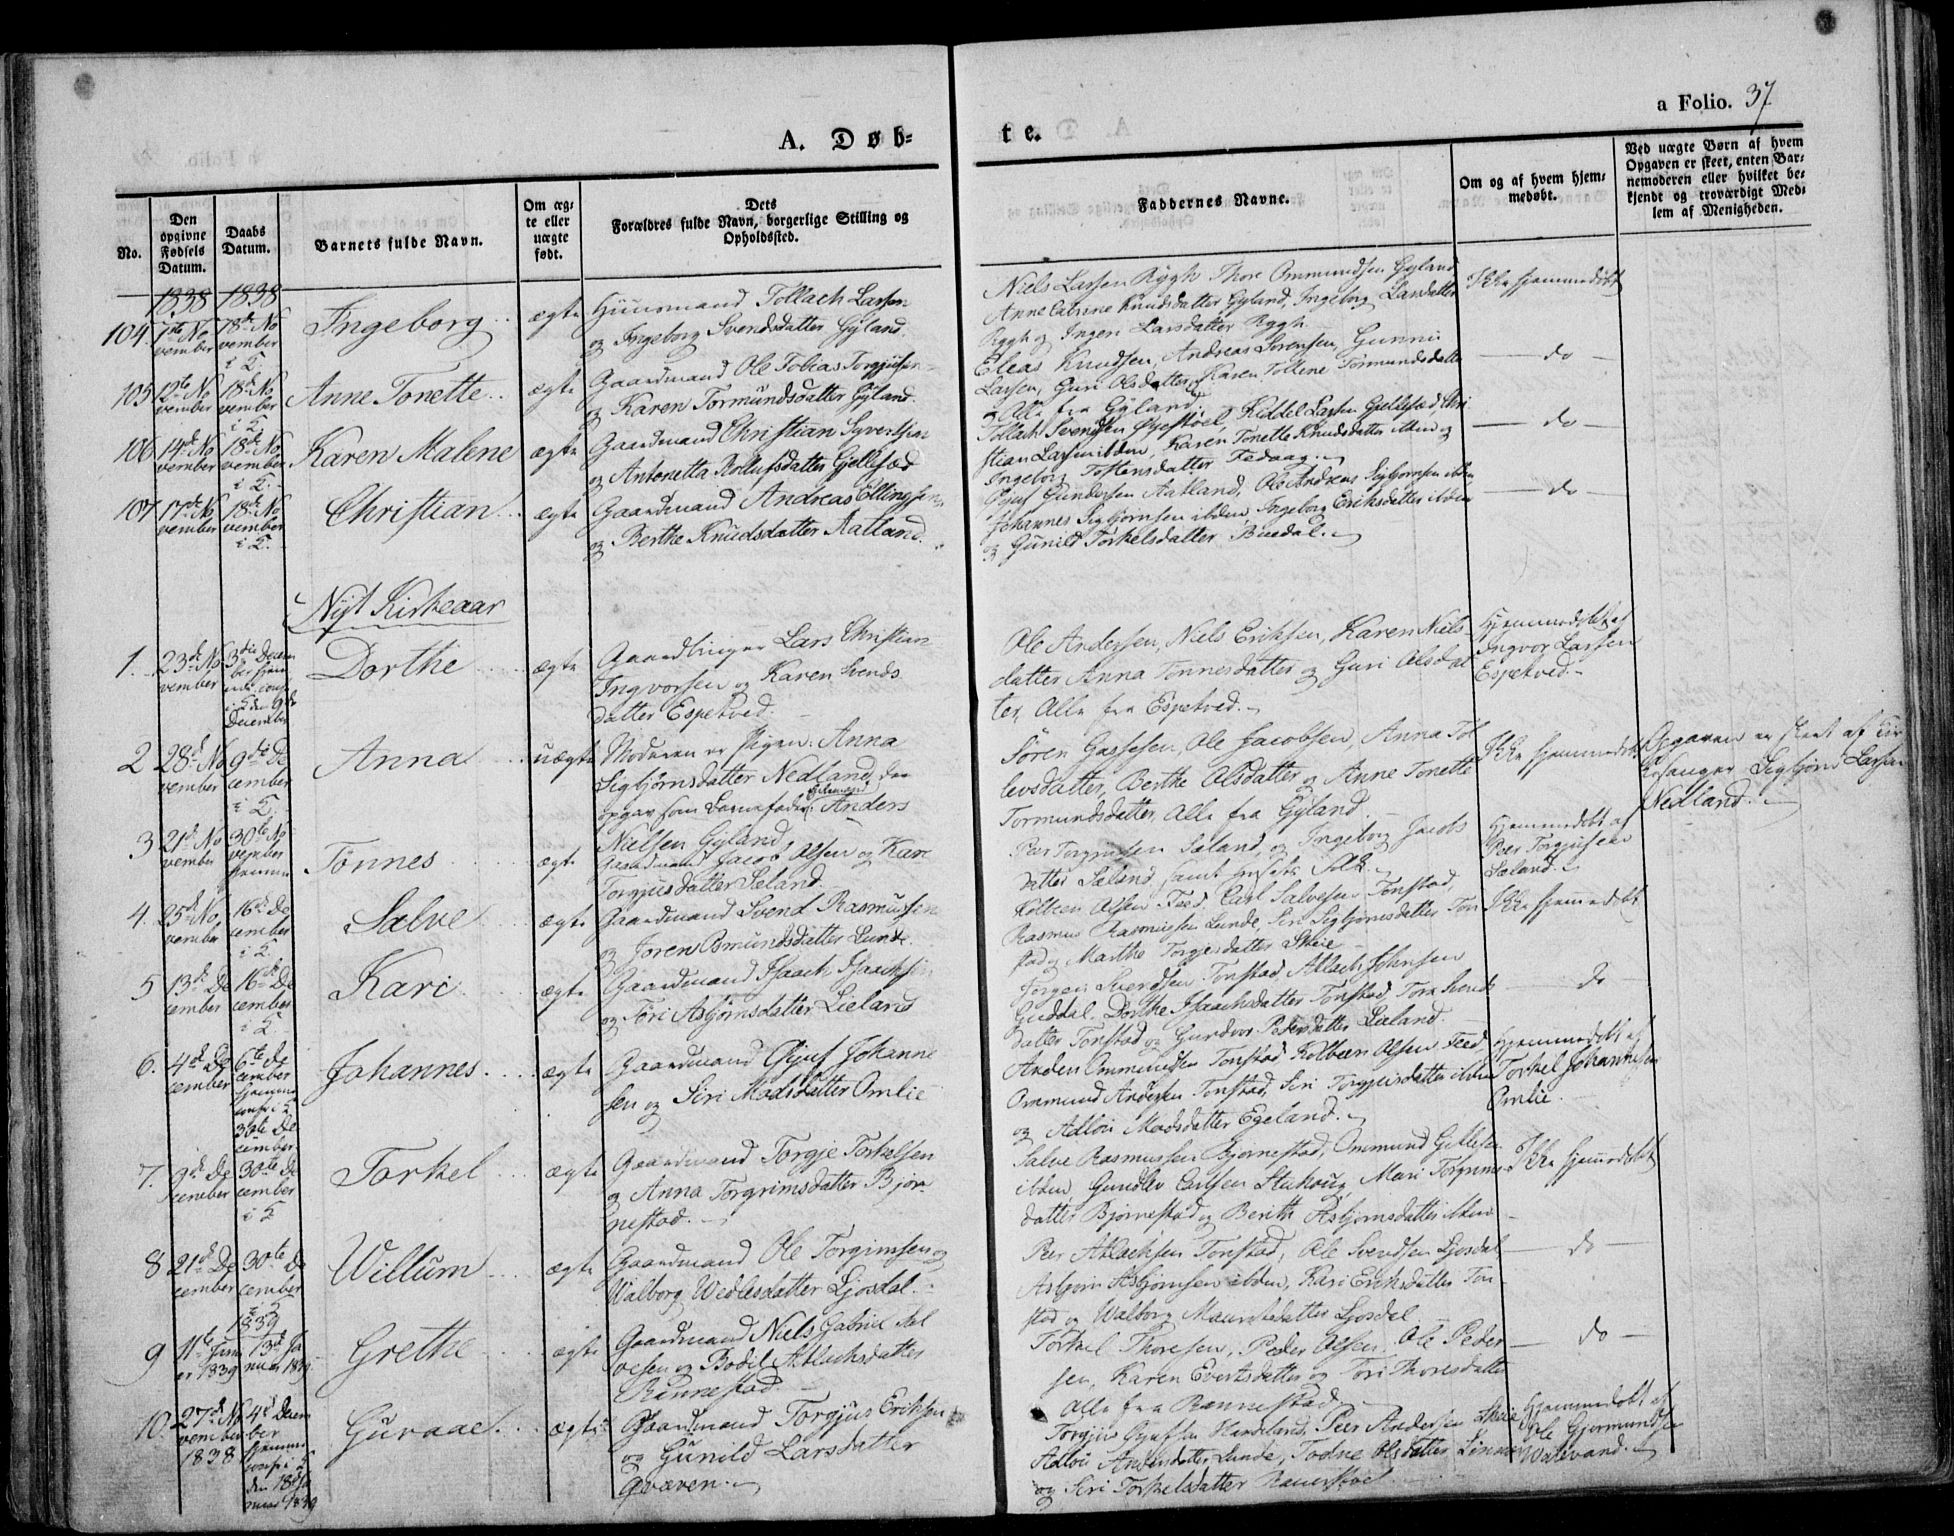 a Folio. 37
A. Døb-
te.
No.
Den opgivne Fødsels Datum.
Daabs Datum.
Barnets fulde Navn.
Om ægte eller uægte født.
Dets Forældres fulde Navn, borgerlige Stilling og Opholdssted.
Faddernes Navne.
Om og af hvem hjemmedøbt.
Ved uægte Børn af hvem Opgaven er skeet, enten Barnemoderen eller hvilket bekjendt og troværdigt Medlem af Menigheden.
1838 1838
104. 7de No
vember
18de No
vember
i K.
Ingeborg
ægte
Huusmand Tollach Larsen
og Ingeborg Svendsdatter Gyland
Niels Larsen Rygh Thore Ommundsen Gyland
Anne Catrine Knudsdatter Gyland, Ingeborg Larsdatter
Rygh og Ingeri Larsdatter Rygh
Ikke hjemmedøbt
105 12te No
vember
18de No
vember
i K.
Anne Tonette
ægte
Gaardmand Ole Tobias Torgiusen
og Karen Tormundsdatter Gyland.
Eleas Knudsen, Andreas Sorensen, Gunni
Larsen, Guri Olsdatter, Karen Tollene Tormundsdatter
Alle fra Gyland
do
106 14de No
vember
18de No
vember
i K.
Karen Malene
ægte
Gaardmand Christian Syvertsen
og Antonetta Rollufsdatter Gjellesæd
Tollach Svendsen Øyestøel, Kiddel Larsen Gjellesæd, Chri
stian Larsen ibdm, Karen Tonette Knudsdatter ibdm og
Ingeborg Tostensdatter Fedaag.
do
107 17de No
vember
18de No
vember
i K.
Christian
ægte
Gaardmand Andreas Ellingsen
og Berthe Knudsdatter Aatland.
Gundersen Aatland, Ole Andreas Sigbjørnsen ibdm
Johannes Sigbjørnsen ibdm, Ingeborg Eriksdatter ibdm
og Gunild Torkelsdatter Buedal.
do
Nyt Kirkeaar
1. 23de No
vember
3die Decem
ber hjem
me conf
i K den 9de
December
Dorthe
ægte
Lars Christian
Ingvorsen og Karen Svends
datter Espetved.
Ole Andersen, Niels Eriksen, Karen Niels
datter Anna Tonnesdatter og Guri Olsdat
ter, Alle fra Espetved.
Hjemmedøbt af
Ingvor Larsen
Espetved.
2 28de No
vember
9de De
cember
i K
Anna
uægte
Moderen er Pigen: Anna
Sigbjørnsdatter Nedland, der
opgav som Barnefader: Anders
Nielsen Gyland
Søren Gassesen, Ole Jacobsen, Anna Tol
levsdatter, Berthe Olsdatter og Anne Tonette
Tormundsdatter, Alle fra Gyland.
Ikke hjemmedøbt
Opgaven er skeet af Kir
kesanger Sigbjørn Larsen
Nedland.
3 21de No
vember
30te No
vember
hjemme
Tønnes
ægte
Gaardmand Jacob Olsen og Kari
Torgjusdatter Sæland.
Peer Torgiusen Sæland, og Ingeborg Jacobs
datter Sæland samt Husets Folk
Hjemmedøbt af
Peer Torgiusen
Sæland.
4. 25de No
vember
16de De
cember
i K
Salve
ægte
Gaardmand Svend Rasmussen
og Joren Omundsdatter Lunde.
Kolbeen Olsen Feed Carl Salvesen Tonstad,
Rasmus Rasmussen Lunde, Siri Sigbjørnsdatter Ton
stad og Marthe Torgiersdatter Skeie
Ikke hjemmedøbt
5 13de De
cember
16de De
cember
i K
Kari
ægte
Gaardmand Isaach Isaachsen
og Tori Asbjørnsdatter Lieland
Jørgen Svendsen Tonstad, Atlach Johnsen
Guddal. Dorthe Isaachsdatter Tonstad, Tora Svends
datter Tonstad og Gundvor Pedersdatter Lieland.
do
6. 4de De
cember
6te De
cember
hjemme
conf i K
30te De
cember
Johannes
ægte
Gaardmand Johanne
sen og Siri Madsdatter Omlie
Anden Ommundsen Tonstad Kolbeen Olsen Feed
Ommund Andersen Tonstad, Siri Torgjusdatter ibdm
og Adloui Madsdatter Egeland.
Hjemmedøbt af
Torkel Johannesen
Omlie.
7. 9de De
cember
30te De
cember
i K
Torkel
ægte
Gaardmand Torgje Torkelsen
og Anna Torgrimsdatter Bjør
nestad.
Salve Rasmussen Bjørnestad, Ommund
ibdm, Gundlev Carlsen Stakoug, Mari Torgrims
datter Bjørnestad og Berith Asbjørnsdatter ibdm
Ikke hjemmedøbt
8 21de De
cember
30te De
cember
i K
Willum
ægte
Gaardmand Ole Torgrimsen og
Walborg Wedlesdatter Ljosdal.
Peer Atlachsen Tonstad, Ole Svendsen Ljosdal
Asbjørn Asbjørnsen ibdm, Kari Eriksdatter Ton
stad og Walborg Mauritsdatter Ljosdal
do
1839
9 11te Janu
ar 1839
13de Ja
nuar 1839
Grethe
ægte
Gaardmand Niels Gabriel Sal
vesen og Bodil Atlachsdatter
Rinnestad.
Torkel Thoresen, Peder Olsen, Ole Peder
sen, Karen Evertsdatter og Tori Thoresdatter
Alle fra
do
10. 27de No
vember
1838
4de Decem
ber
hjemme
conf i K
den 18de Ja
nuar 1839
Guraae
ægte
Gaardmand Torgjus Eriksen
og Gunild Larsdatter
Qvæven.
Torgius Haneland, Peer Andersen Skeie
Adloui Andersdatter Lunde, Todne Olsdatter
og Siri Torkelsdatter
Hjemmedøbt af
Ole Gjermundsen
Watevand.